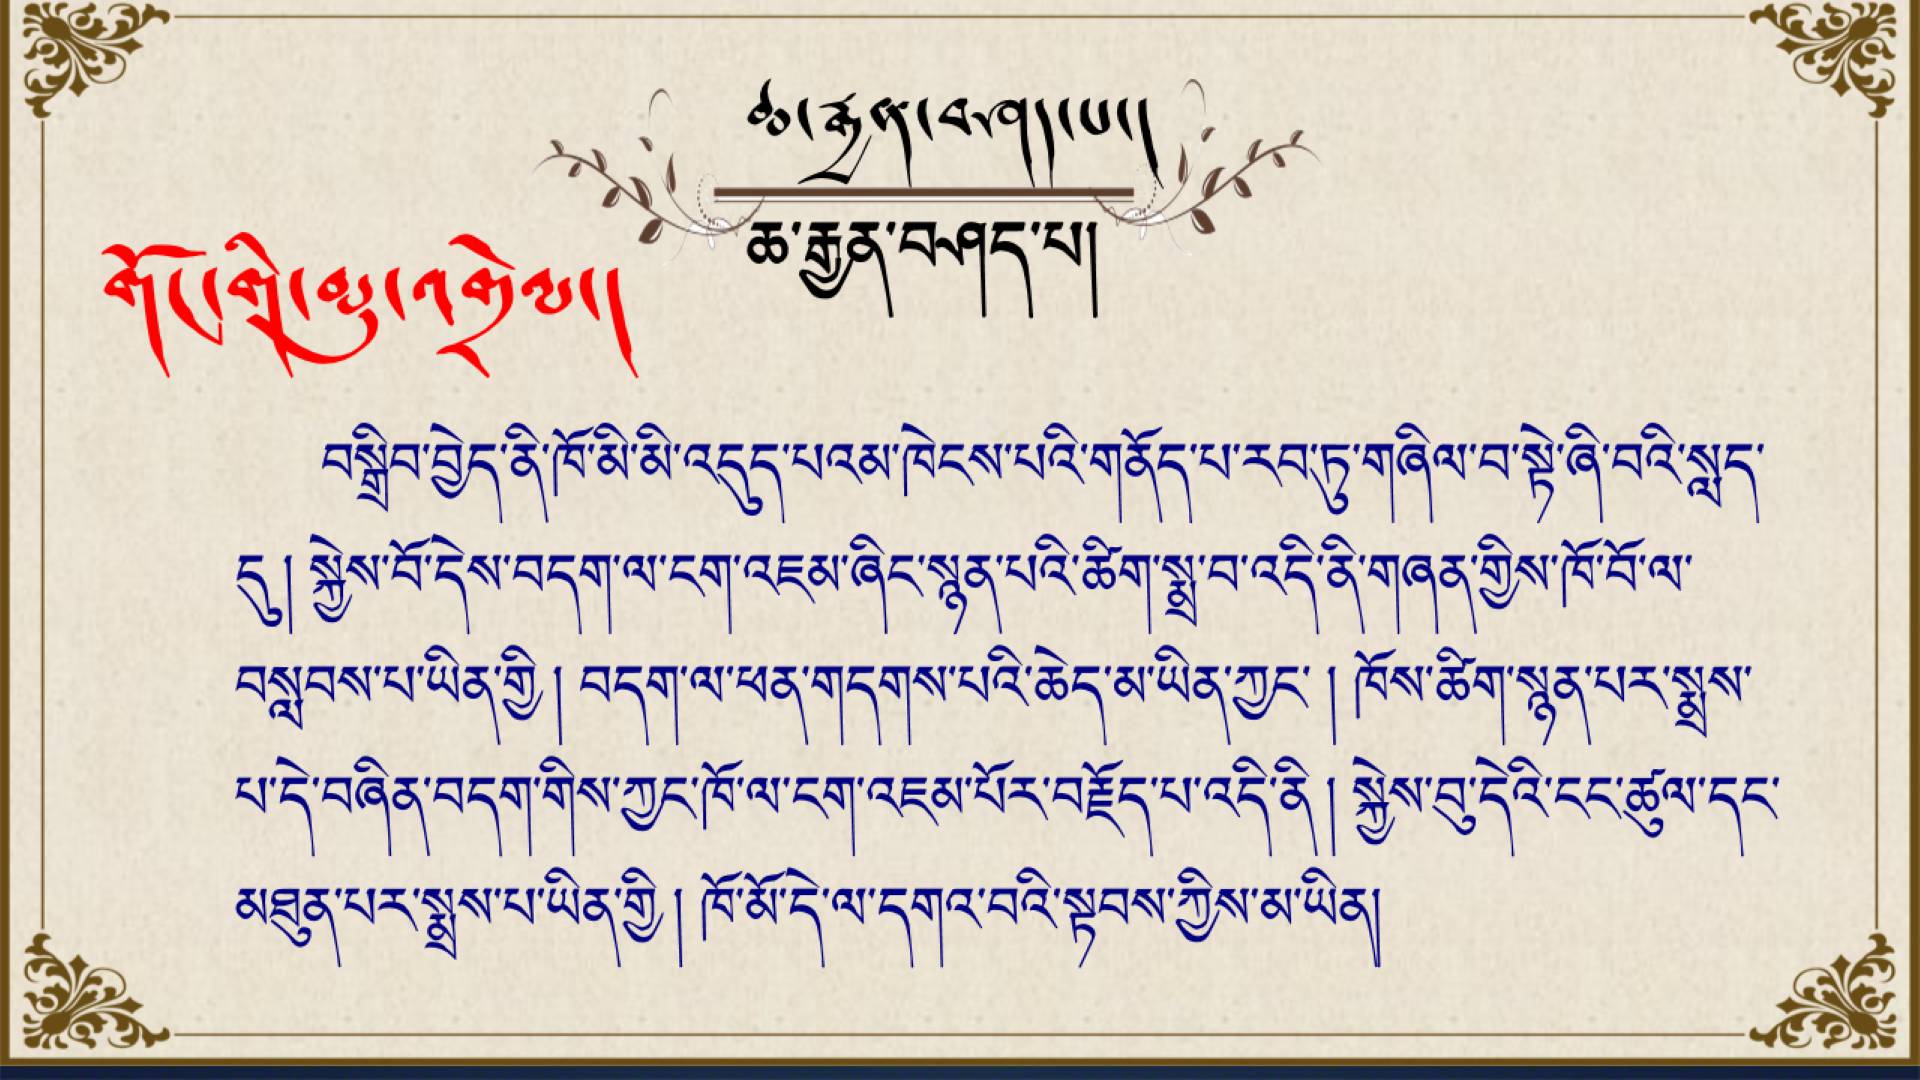 ཆ་རྒྱན་བཤད་པ།།
ཆ་རྒྱན་བཤད་པ།
བསྒྲིབ་བྱེད་ནི་ཁོ་མི་མི་འདུད་པའམ་ཁེངས་པའི་གནོད་པ་རབ་ཏུ་གཞིལ་བ་སྟེ་ཞི་བའི་སླད་
དུ། སྐྱེས་བོ་དེས་བདག་ལ་ངག་འཇམ་ཞིང་སྙན་པའི་ཚིག་སྨྲ་བ་འདི་ནི་གཞན་གྱིས་ཁོ་བོ་ལ་
བསླབས་པ་ཡིན་གྱི། བདག་ལ་ཕན་གདགས་པའི་ཆེད་མ་ཡིན་ཀྱང་། ཁོས་ཚིག་སྙན་པར་སྨྲས་
པ་དེ་བཞིན་བདག་གིས་ཀྱང་ཁོ་ལ་ངག་འཇམ་པོར་བརྗོད་པ་འདི་ནི། སྐྱེས་བུ་དེའི་ངང་ཚུལ་དང་
མཐུན་པར་སྨྲས་པ་ཡིན་གྱི། ཁོ་མོ་དེ་ལ་དགའ་བའི་སྟབས་ཀྱིས་མ་ཡིན།